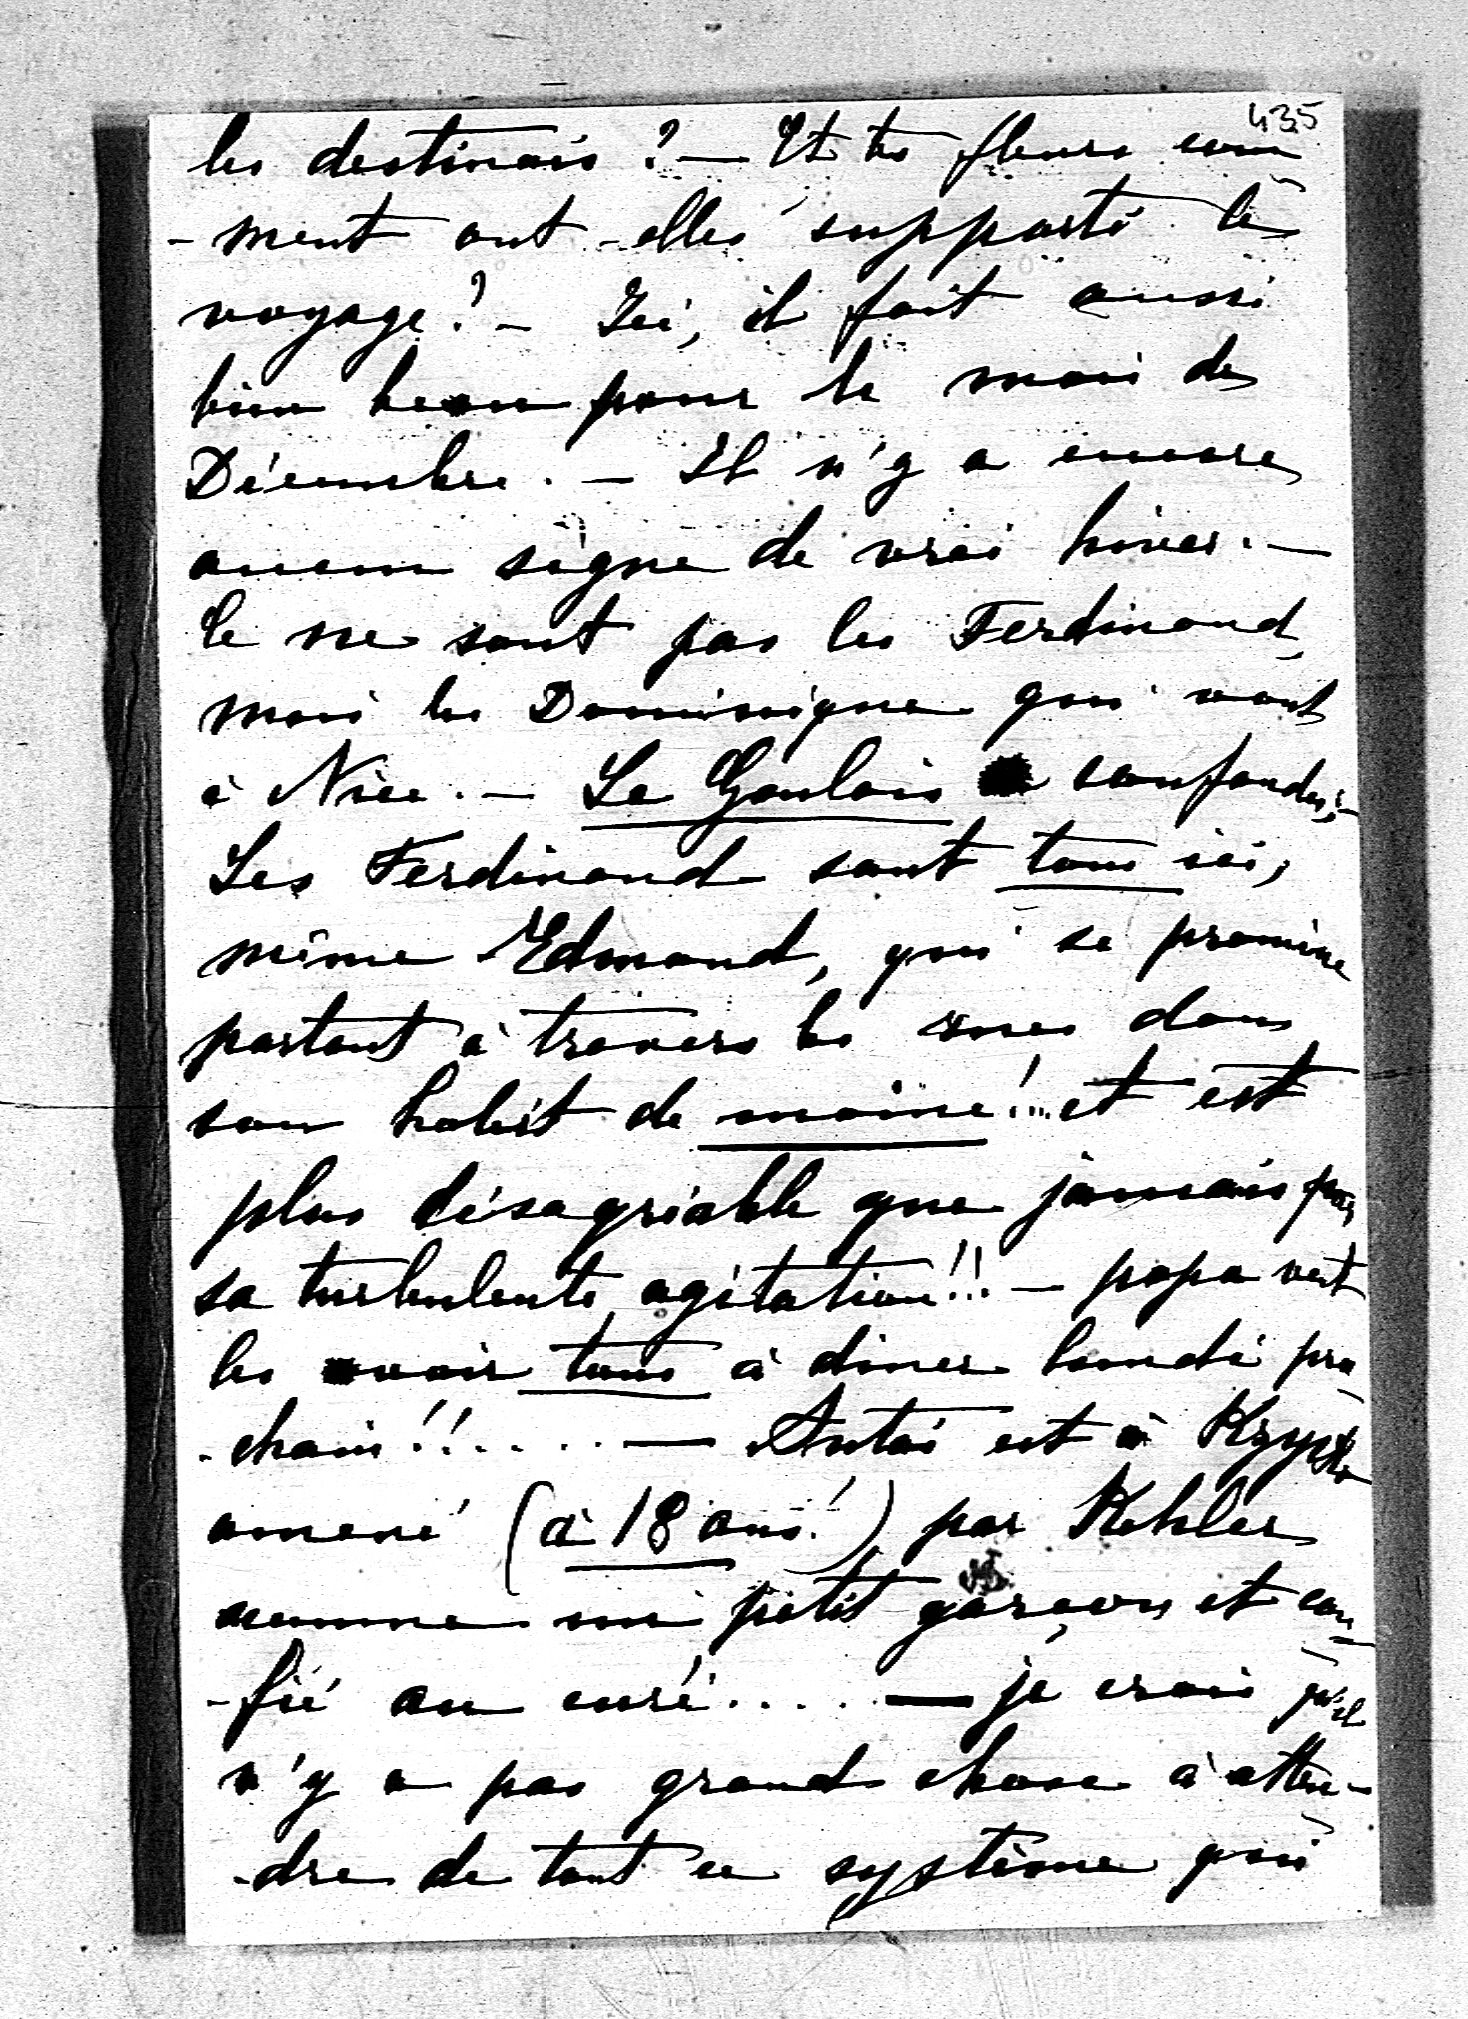 435
les destinais ? — Et tes fleurs com
- ment ont - elles supporté le
voyage ? — Ici, il fait aussi
bien beau pour le mois de
Décembre. — Il n'y a encore
aucun signe de vrai hiver. —
Ce ne sont pas les Ferdinand,
mais les Dominique qui vont
à Nice. — Le Gaulois confond,
Les Ferdinand sont tous ici,
même Edmond, qui se promène
partout à travers les rues dans
son habit de moine !... et est
plus désagréable que jamais par
sa turbulente agitation !!! — papa veut
les avoir tous à diner lundi pro
- chain !!..... — Antoś est à
amené (à 18 ans !) par Kehler
comme un petit garçon et con
- fié au curé..... — je crois qu'il
n'y a pas grand chose à atten-
- dre de tout ce système qui